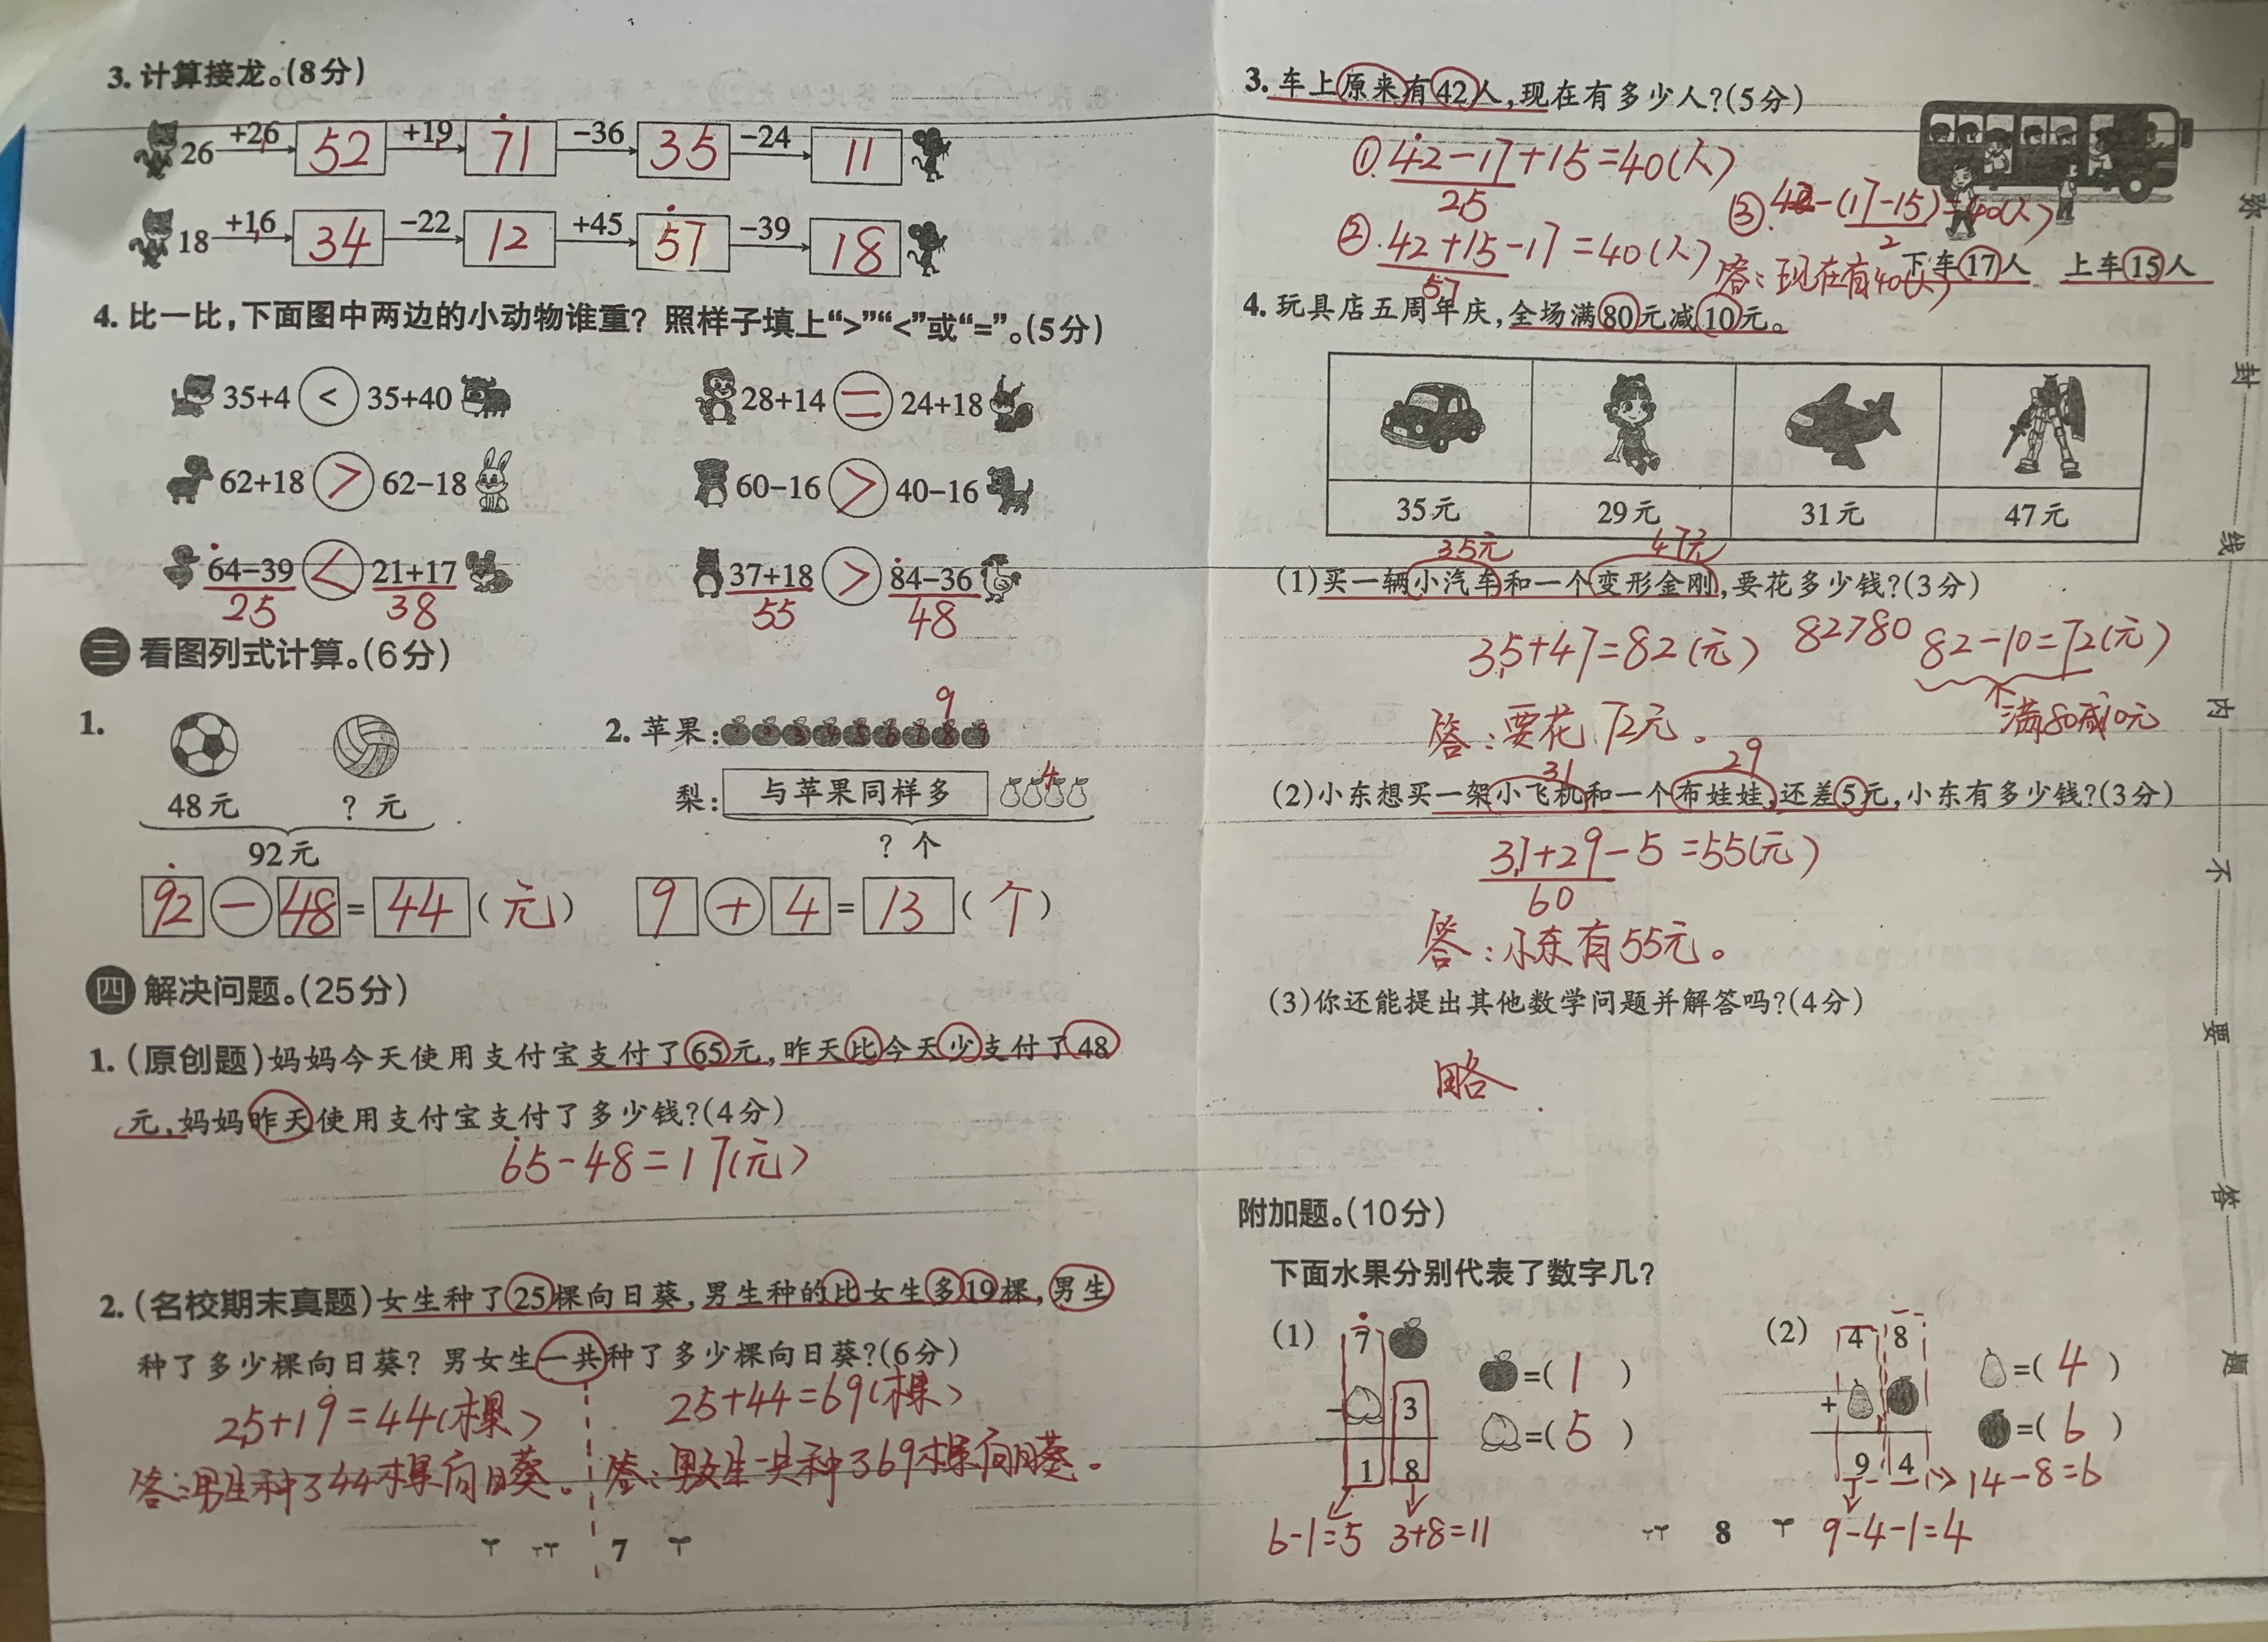 3. 计算接龙。(8分)
26 +26 52 +19 71 −36 35 −24 11
18 +16 34 −22 12 +45 57 −39 18
4. 比一比,下面图中两边的小动物谁重?照样子填上“>”“<”或“=”。(5分)
35+4 < 35+40 28+14 = 24+18
62+18 > 62−18 60−16 > 40−16
64−39 < 21+17 37+18 > 84−36
25 38 55 48
三 看图列式计算。(6分)
1.
48元 ? 元
92元
92 − 48 = 44 (元)
9
2. 苹果: 1 2 3 4 5 6 7 8 9
4
梨: 与苹果同样多
? 个
9 + 4 = 13 (个)
四 解决问题。(25分)
1. (原创题)妈妈今天使用支付宝支付了65元,昨天比今天少支付了48
元,妈妈昨天使用支付宝支付了多少钱?(4分)
65−48=17(元)
2. (名校期末真题)女生种了25棵向日葵,男生种的比女生多19棵,男生
种了多少棵向日葵? 男女生一共种了多少棵向日葵?(6分)
25+19=44(棵) 25+44=69(棵)
答:男生种了44棵向日葵。 答:男女生一共种了69棵向日葵。
7
3. 车上原来有42人,现在有多少人?(5分)
①. 42−17+15=40(人)
25
②. 42+15−17=40(人)
57
③. 42−(17−15)=40(人)
2
答:现在有40(人)
下车17人 上车15人
4. 玩具店五周年庆,全场满80元减10元。
35元 29元 31元 47元
35元 47元
(1)买一辆小汽车和一个变形金刚,要花多少钱?(3分)
35+47=82(元) 82>80 82−10=72(元)
满80减10元
答:要花72元。
31 29
(2)小东想买一架小飞机和一个布娃娃,还差5元,小东有多少钱?(3分)
31+29−5=55(元)
60
答:小东有55元。
(3)你还能提出其他数学问题并解答吗?(4分)
略
附加题。(10分)
下面水果分别代表了数字几?
(1) 7
− 3
1 8
=(1)
=(5)
6−1=5 3+8=11
(2) 4 8
+
9 4
=(4)
=(6)
14−8=6
9−4−1=4
8
弥 封 线 内 不 要 答 题